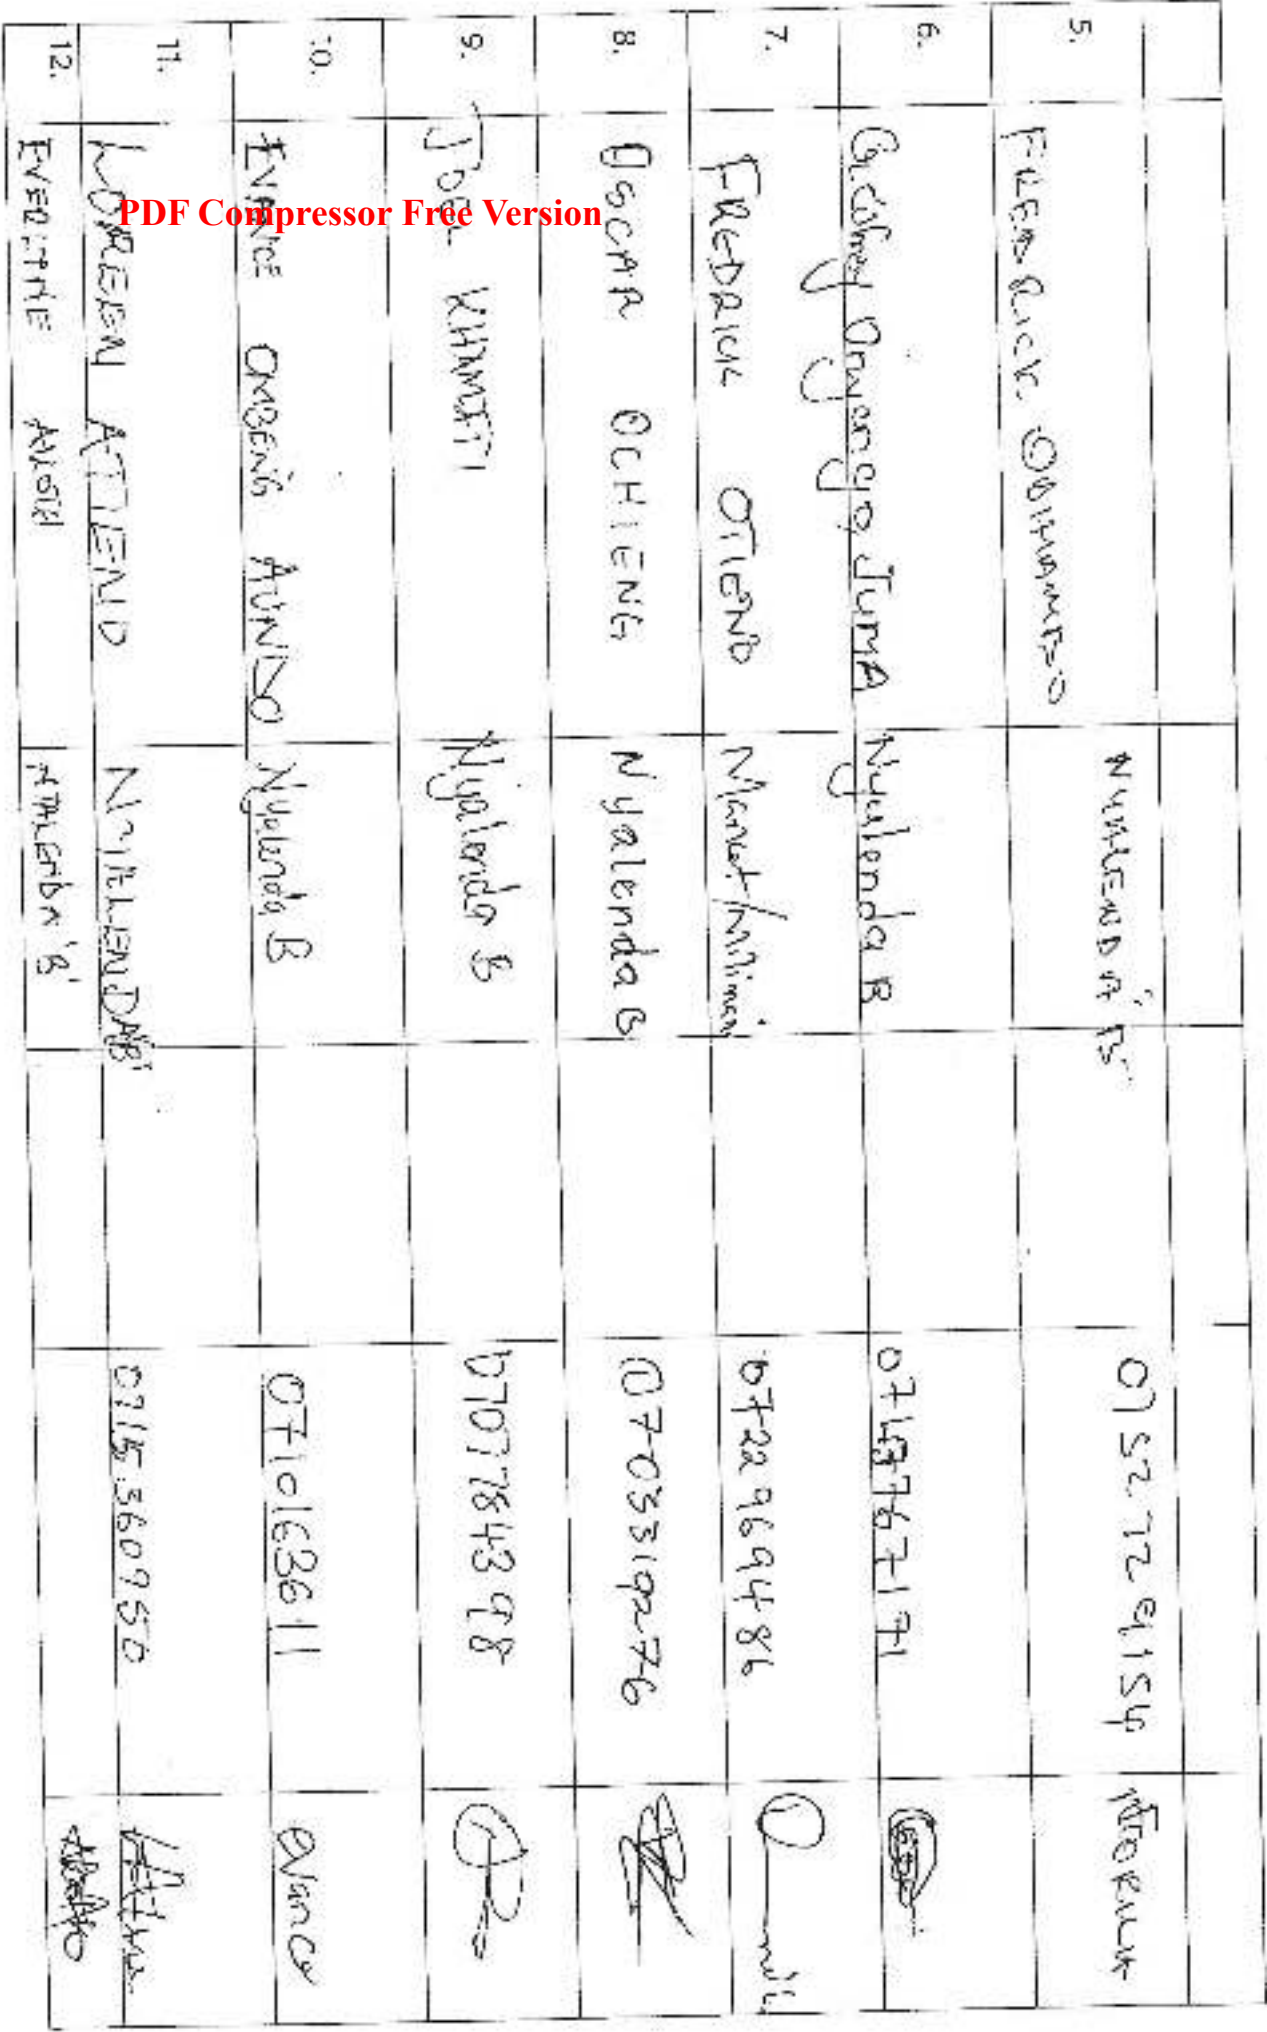 PDF Compressor Free Version
5. FREDRICK ODHIAMBO NYALENDA "B" 0752729154
6. Geofrey Onyango JUMA Nyalenda B
7. FREDRICK OTIENO Market/Milimani 0722969486
8. OSCAR OCHIENG Nyalenda B 0703319276
9. JOEL KHAMATI Nyalenda B 0707784398
10. EVANCE OMBENG AUNDO Nyalenda B 0710163611 evance
11. LOREEN ATIENO NYALENDA 'B' 0715360950
12. EVERLYNE NYALENDA 'B'